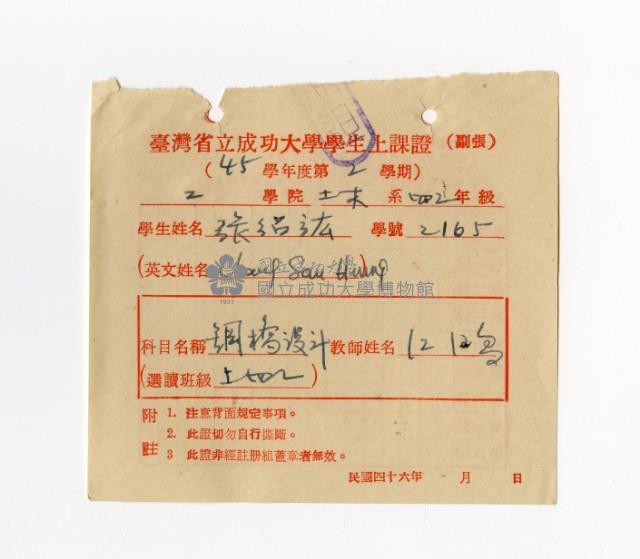 臺灣省立成功大學學生上課證(副張)
(45學年度第2學期)
學院 土木 系 四乙年級
學生姓名 張紹 學號 2165
(英文姓名 Chang Sau Hung)
國立成功大學
國立成功大學博物館
1931
科目名稱 鋼橋設計 教師姓名
(選讀班級 土四乙)
附註
1. 注意背面規定事項。
2. 此證切勿自行撕斷。
3 此證非經註册組蓋章者無效。
民國四十六年 月 日